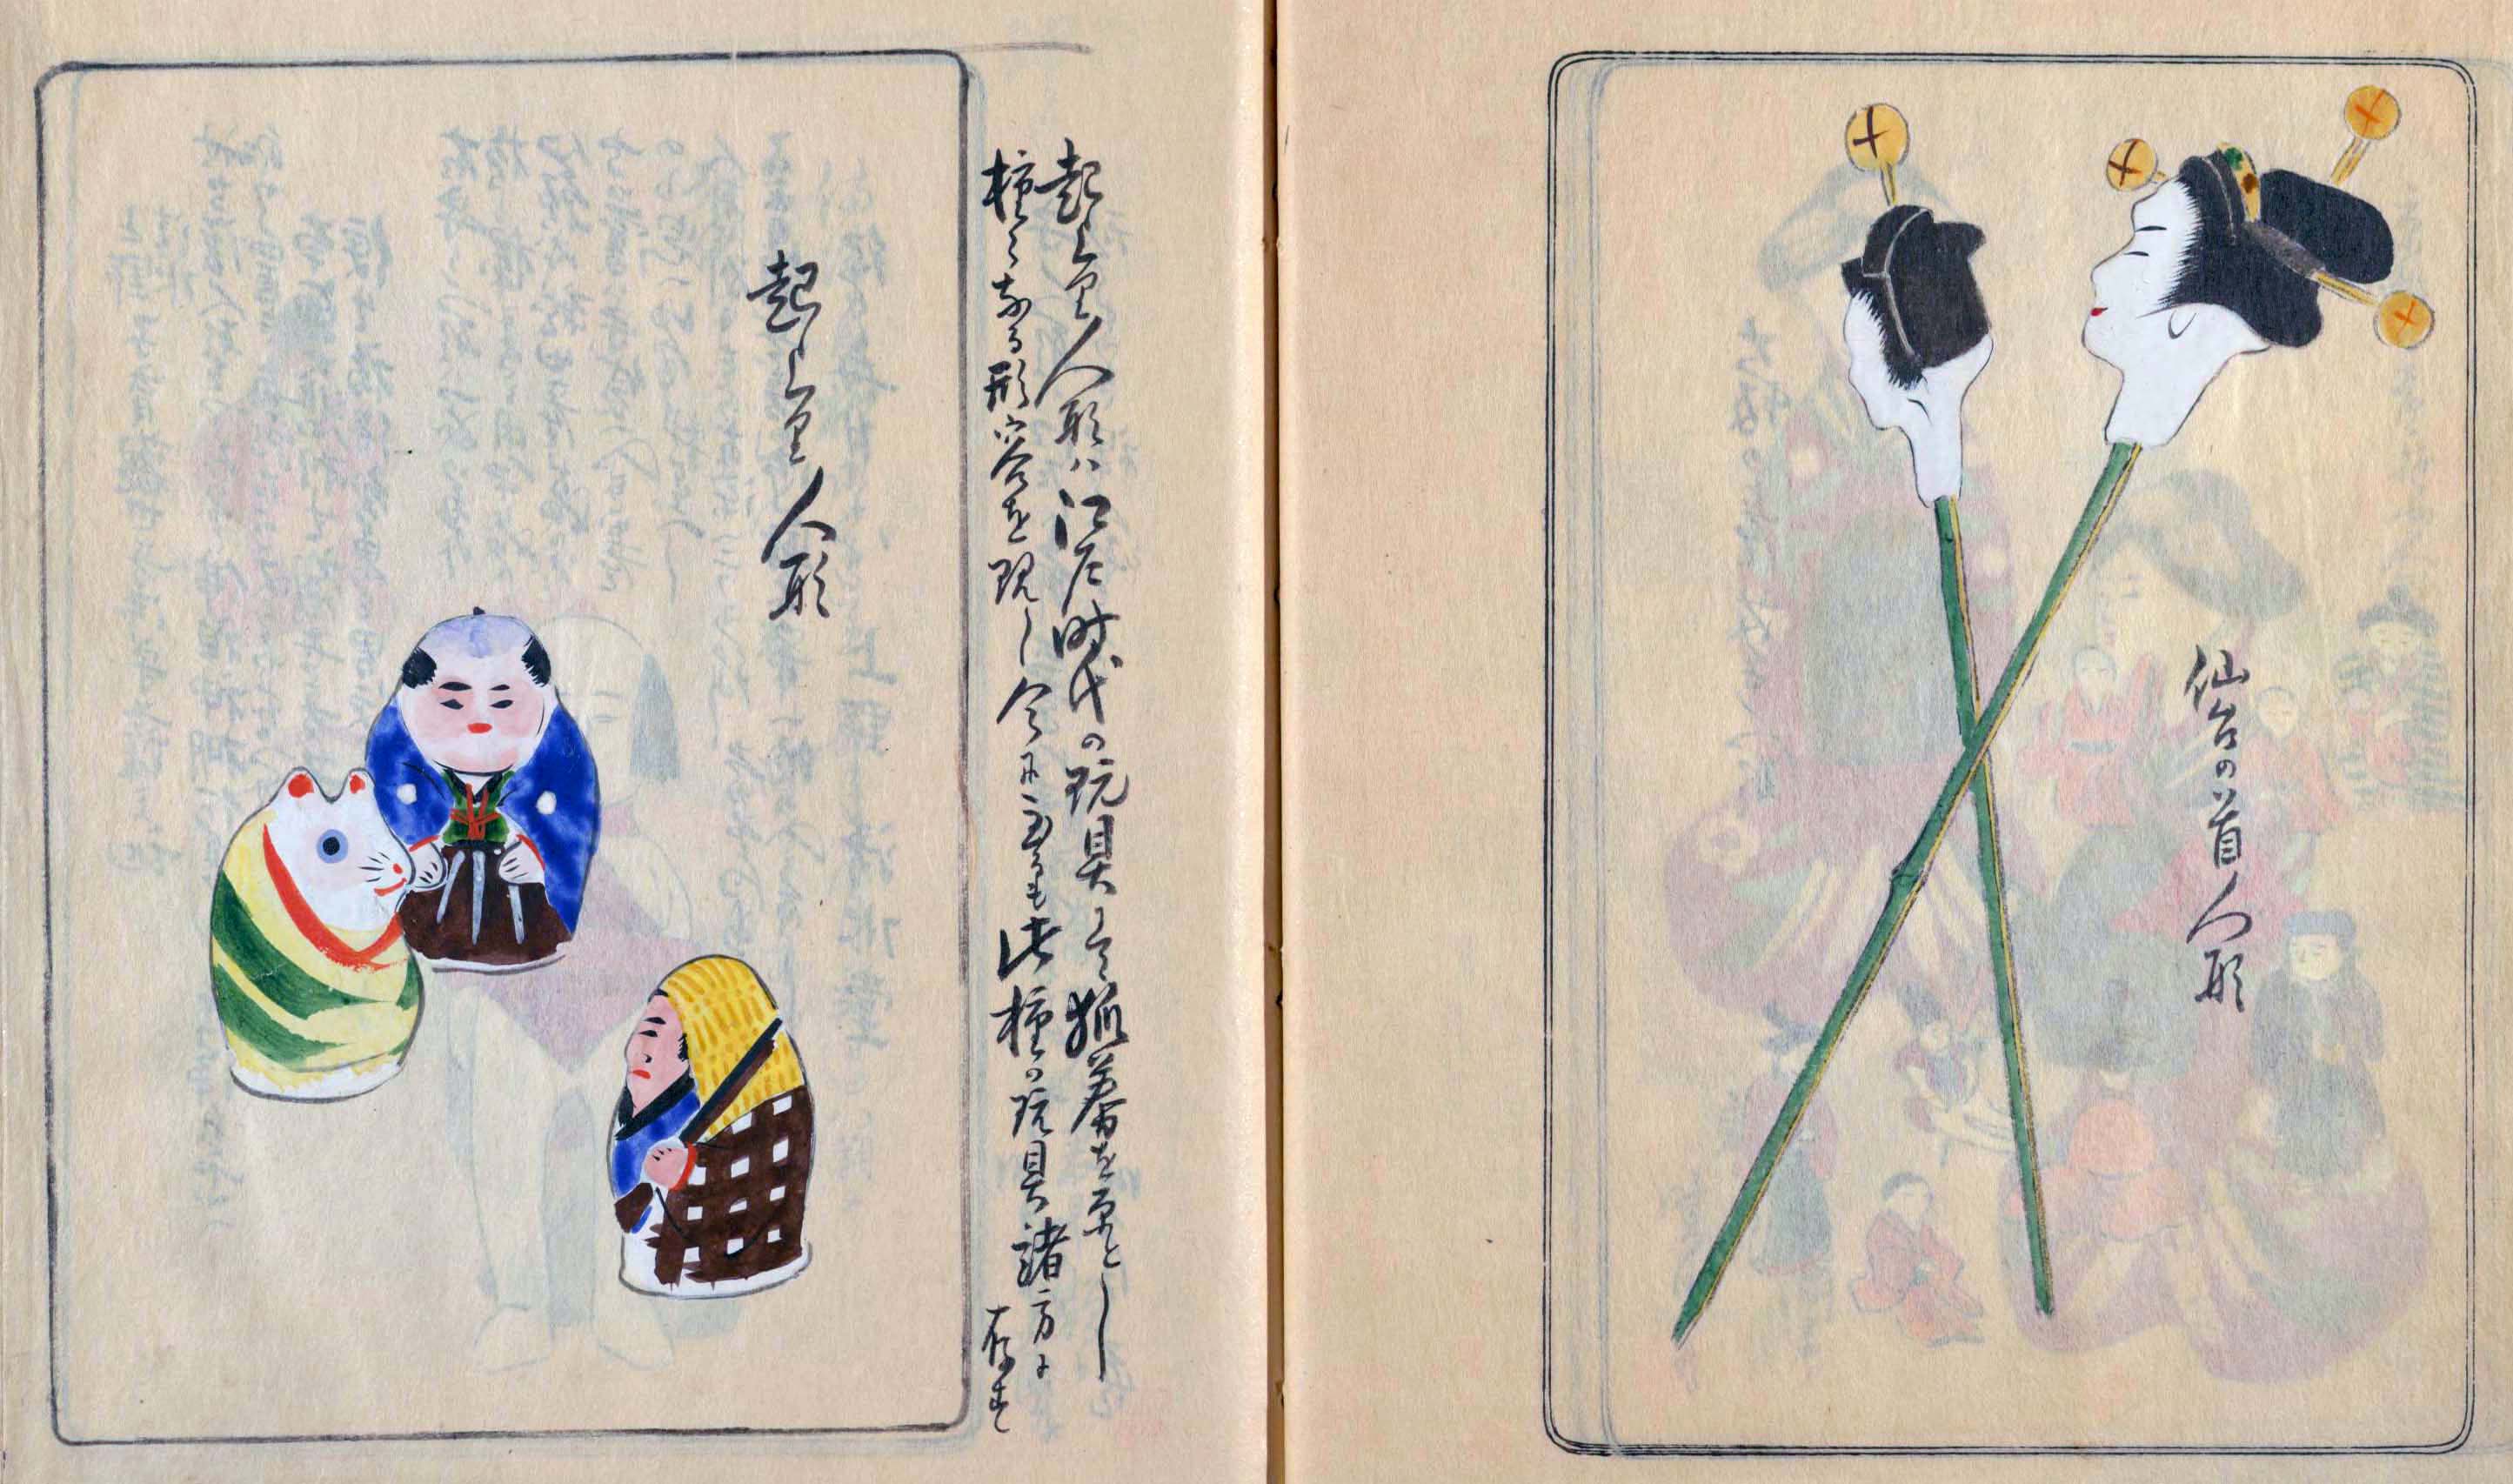 仙台の首人形
起上り人形ハ江戸時代の玩具にて狐を原とし
種々なる形容を現し今に至るも此種の玩具諸方に存す
起上り人形